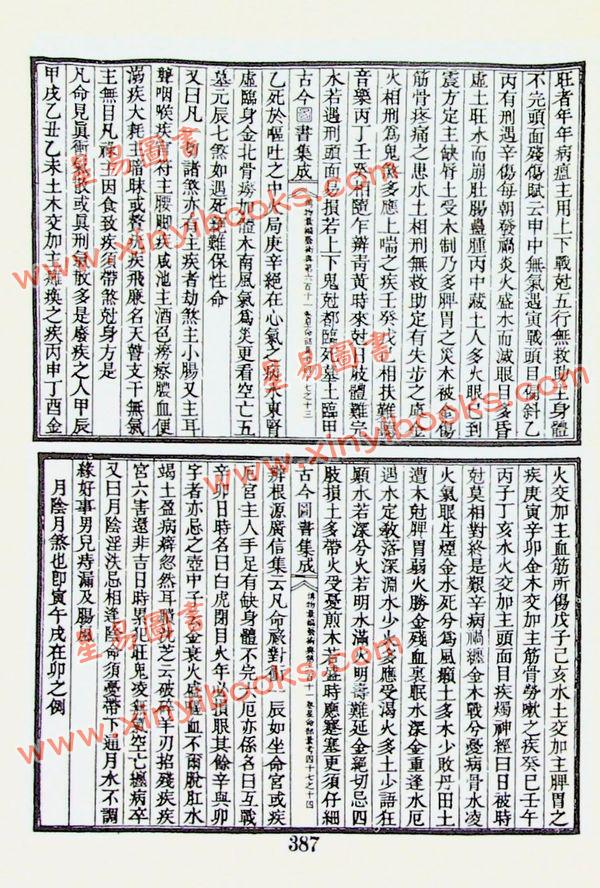 旺者年年病瘟主用上下戰尅五行無救助主身體
不完頭面殘傷賦云申中無氣遇寅戰頭目傷斜乙
丙有刑遇辛傷每朝發禍炎火盛水而滅眼目多昏
虛土旺水而崩肚腸蠱腫丙中藏土人多火眼已到
震方定主缺脣土受木制乃多脾胃之災木被金傷
筋骨疼痛之患水土相刑無救助定有失步之虞金
火相刑為鬼煞多應上喘之疾壬癸戊己相扶難
音樂丙丁壬癸相隨乍辯青黃時來尅日肢體難完
水若遇刑頭面易損若上下鬼尅都臨死墓土臨甲
古今圖書集成
乙死於嘔吐之中火局庚辛絕在心氣之病水東腎
虛臨身金北骨癆加體木南風氣為災更看空亡五
墓元辰七煞如遇死絕難保性命
又曰凡 諸煞亦有主疾者劫煞主小腸又主耳
聾咽喉疾官符主腰脚疾咸池主酒色癆瘵膿血便
溺疾大耗主暗昧或 疾飛廉名天瞽支干無氣
主無目凡祿主因食致疾須帶煞尅身方是
凡命見眞衝眞 或眞刑氣散多是廢疾之人甲辰
甲戌乙丑乙未土木交加主癱瘓之疾丙申丁酉金
火交加主血筋所傷戊子己亥水土交加主脾胃之
疾庚寅辛卯金木交加主筋骨勞嗽之疾癸巳壬午
丙子丁亥水火交加主頭面目疾燭神經曰日被時
尅莫相對終是艱辛病禍纏金木戰分憂病骨水凌
火氣眼生煙金水死分為風癲土多水少敗丹田土
遭木尅脾胃弱火勝金殘血裏眠水深金重逢水厄
遇水定教落深淵水少火多應受渴火多土少語狂
顛水若深分火若明水滿火明壽難延金絕切忌四
肢損土多帶火受憂煎木若盛時應蹇塞更須仔細
古今圖書集成
辨根源廣信集云凡命 對值 辰如坐命宮或疾
厄宮主人手足有缺身體不完之厄亦係名曰互戰
辛卯日時名曰白虎閉目火年 當眼其餘辛與卯
字者亦忌之壺中子云金衰火盛 血不爾脫肛水
竭土盈病癖忽然耳聵 芝云破 羊刃招殘疾疾
宮六害還非吉日時累 旺鬼凌無氣空亡攊病卒
又曰月陰淫泆忌相逢陰命須憂帶下通月水不調
緣好事男兒痔漏及腸風
月陰月煞也卽寅午戌在卯之例
387
星易圖書
www.xinyibooks.com
星易圖書
www.xinyibooks.com
星易圖書
www.xinyibooks.com